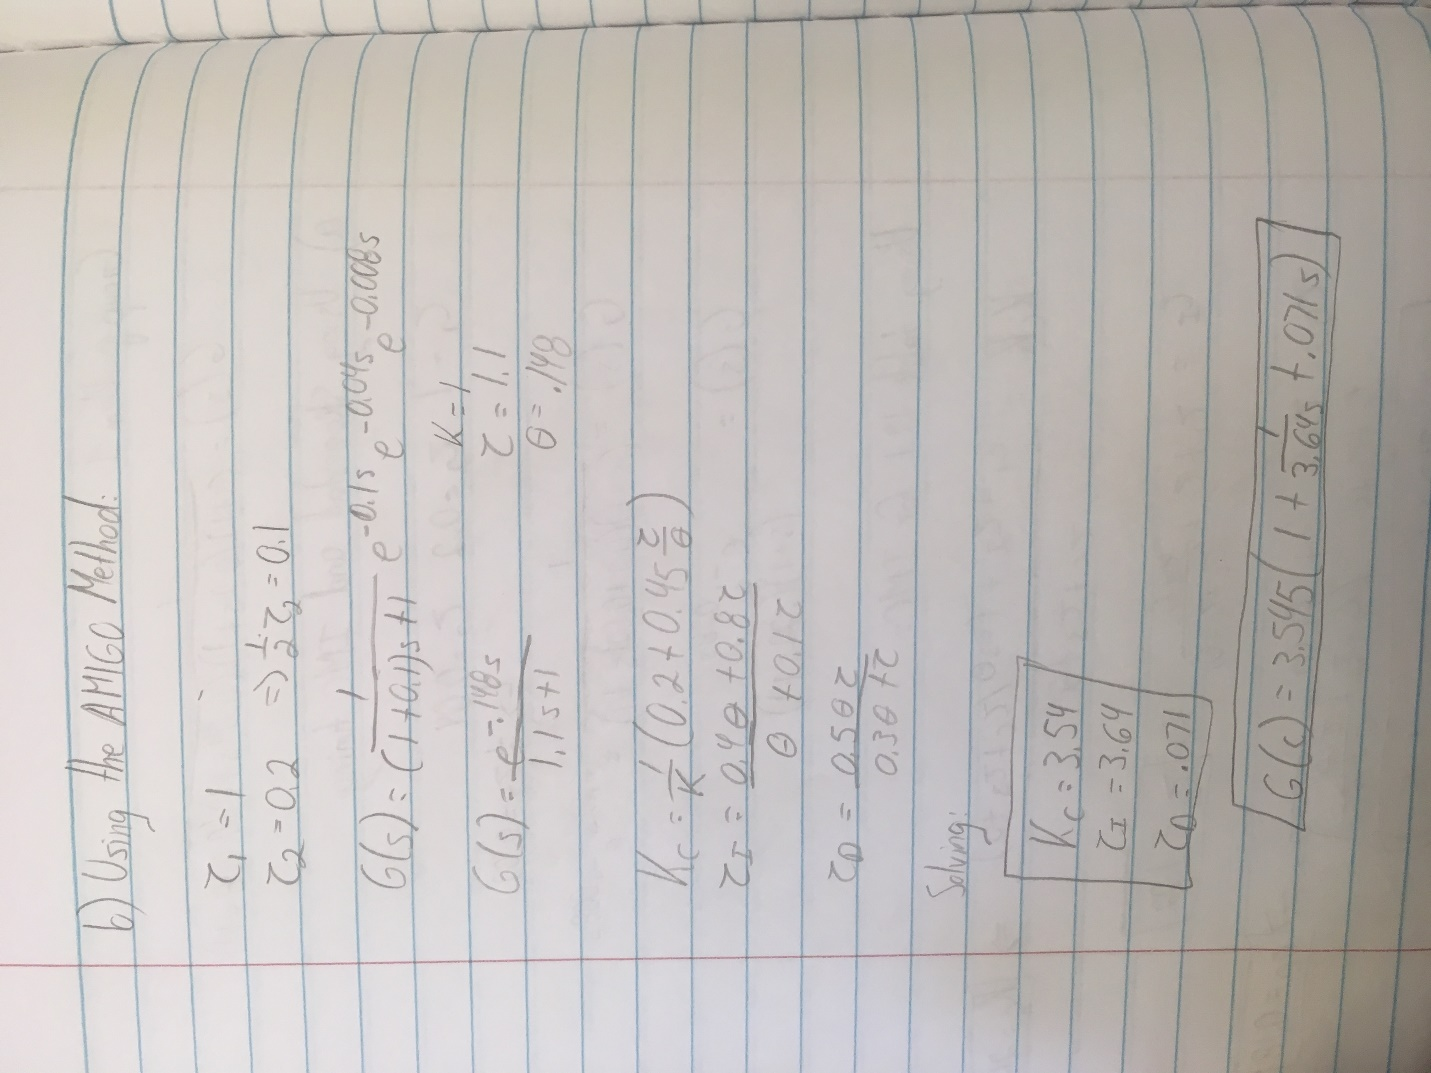 b) Using the AMIGO Method:
τ₁ = 1
τ₂ = 0.2 ⇒ 1/2 τ₂ = 0.1
G(s) = 1/((1+0.1)s+1) e^-0.1s e^-0.04s e^-0.008s
G(s) = e^-.148s/(1.1s+1)
K = 1
τ = 1.1
θ = .148
K_c = 1/K (0.2 + 0.45 τ/θ)
τ_I = (0.4θ + 0.8τ)/(θ + 0.1τ)
τ_D = 0.5θτ/(0.3θ + τ)
Solving:
K_c = 3.54
τ_I = 3.64
τ_D = .071
G(c) = 3.545(1 + 1/3.64s + .071s)